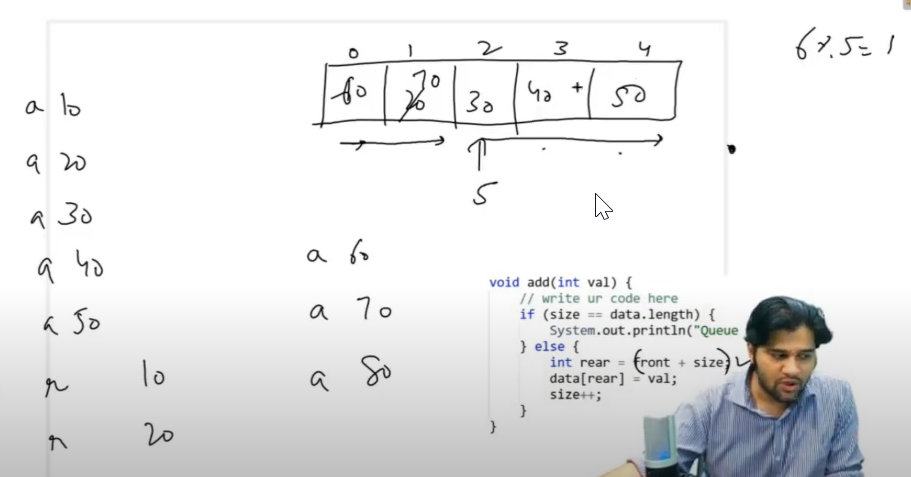 6 % 5 = 1
0 1 2 3 4
60 20 70 30 40 + 50
5
a 10
a 20
a 30
a 40
a 50
r 10
r 20
a 60
a 70
a 80
void add(int val) {
// write ur code here
if (size == data.length) {
System.out.println("Queue
} else {
int rear = (front + size)
data[rear] = val;
size++;
}
}